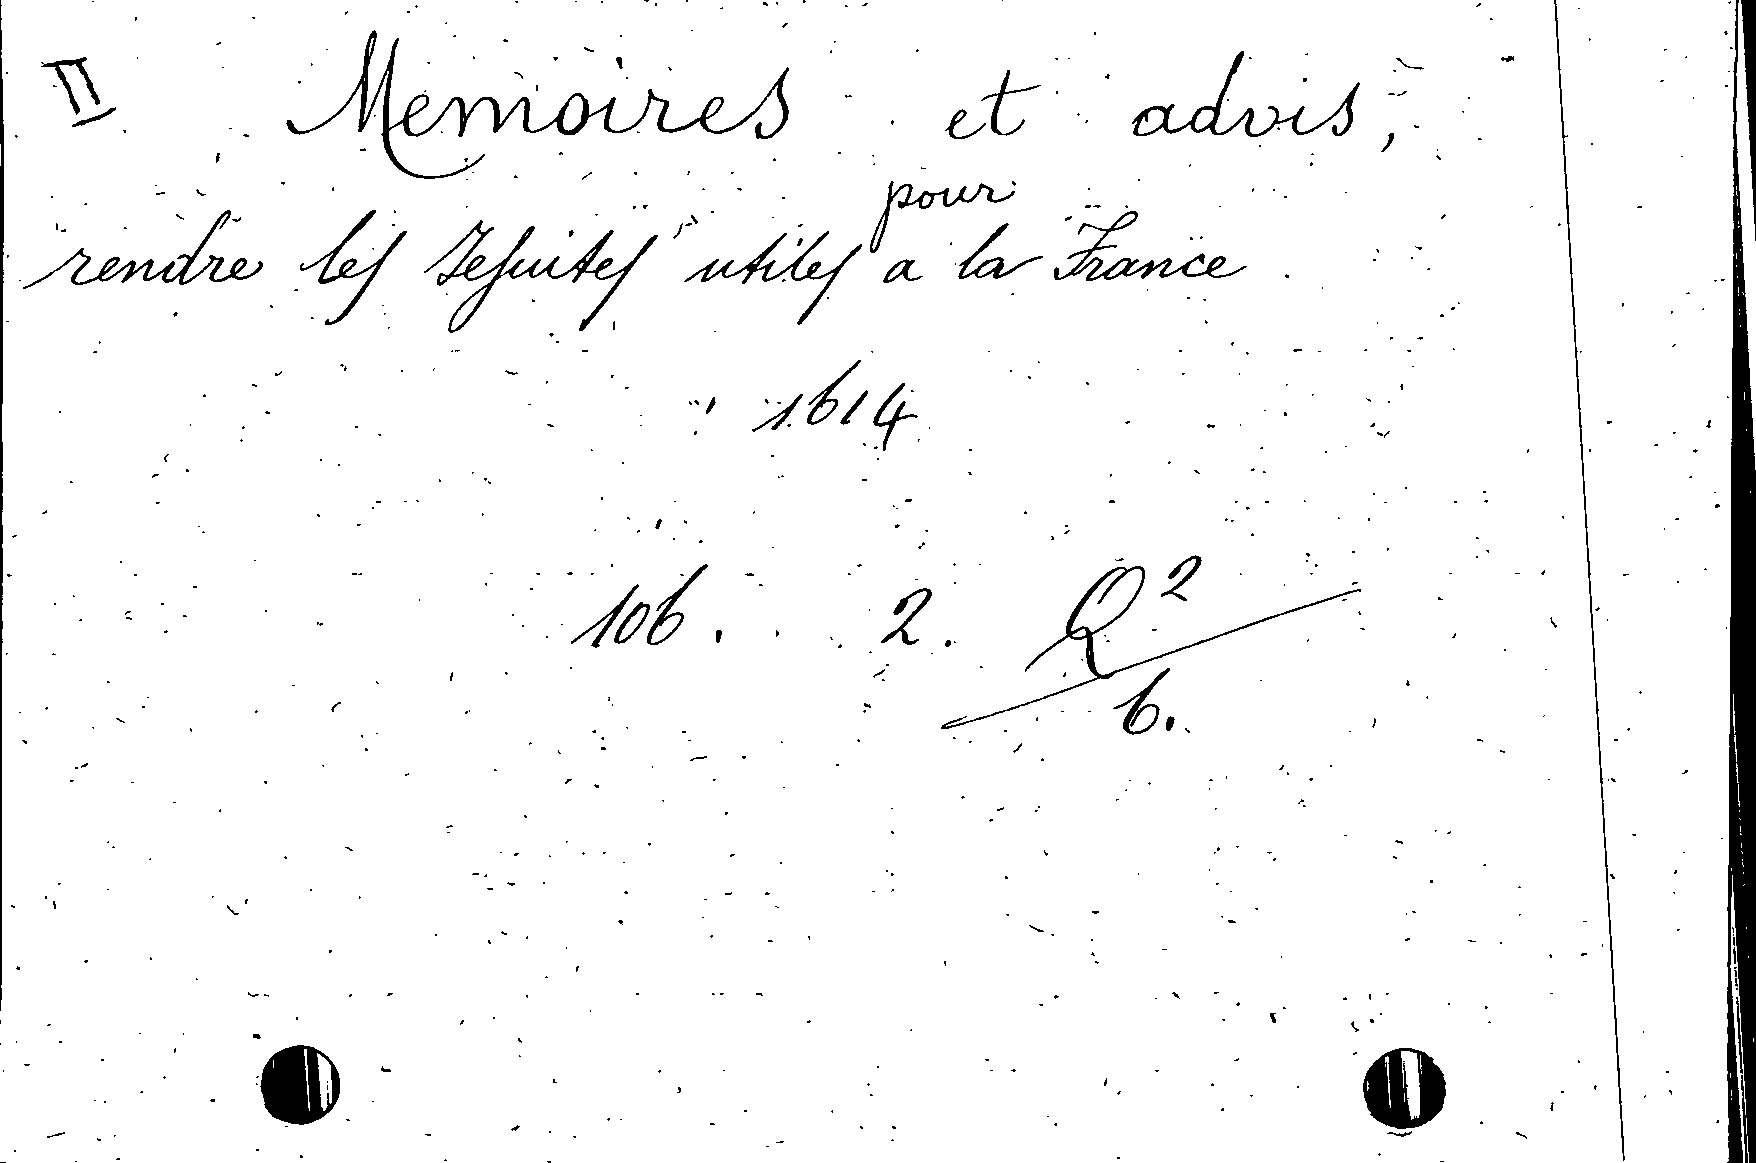 II Memoires et advis,
pour
rendre les Jesuites utiles a la France
1614
106. 2. Q²
6.